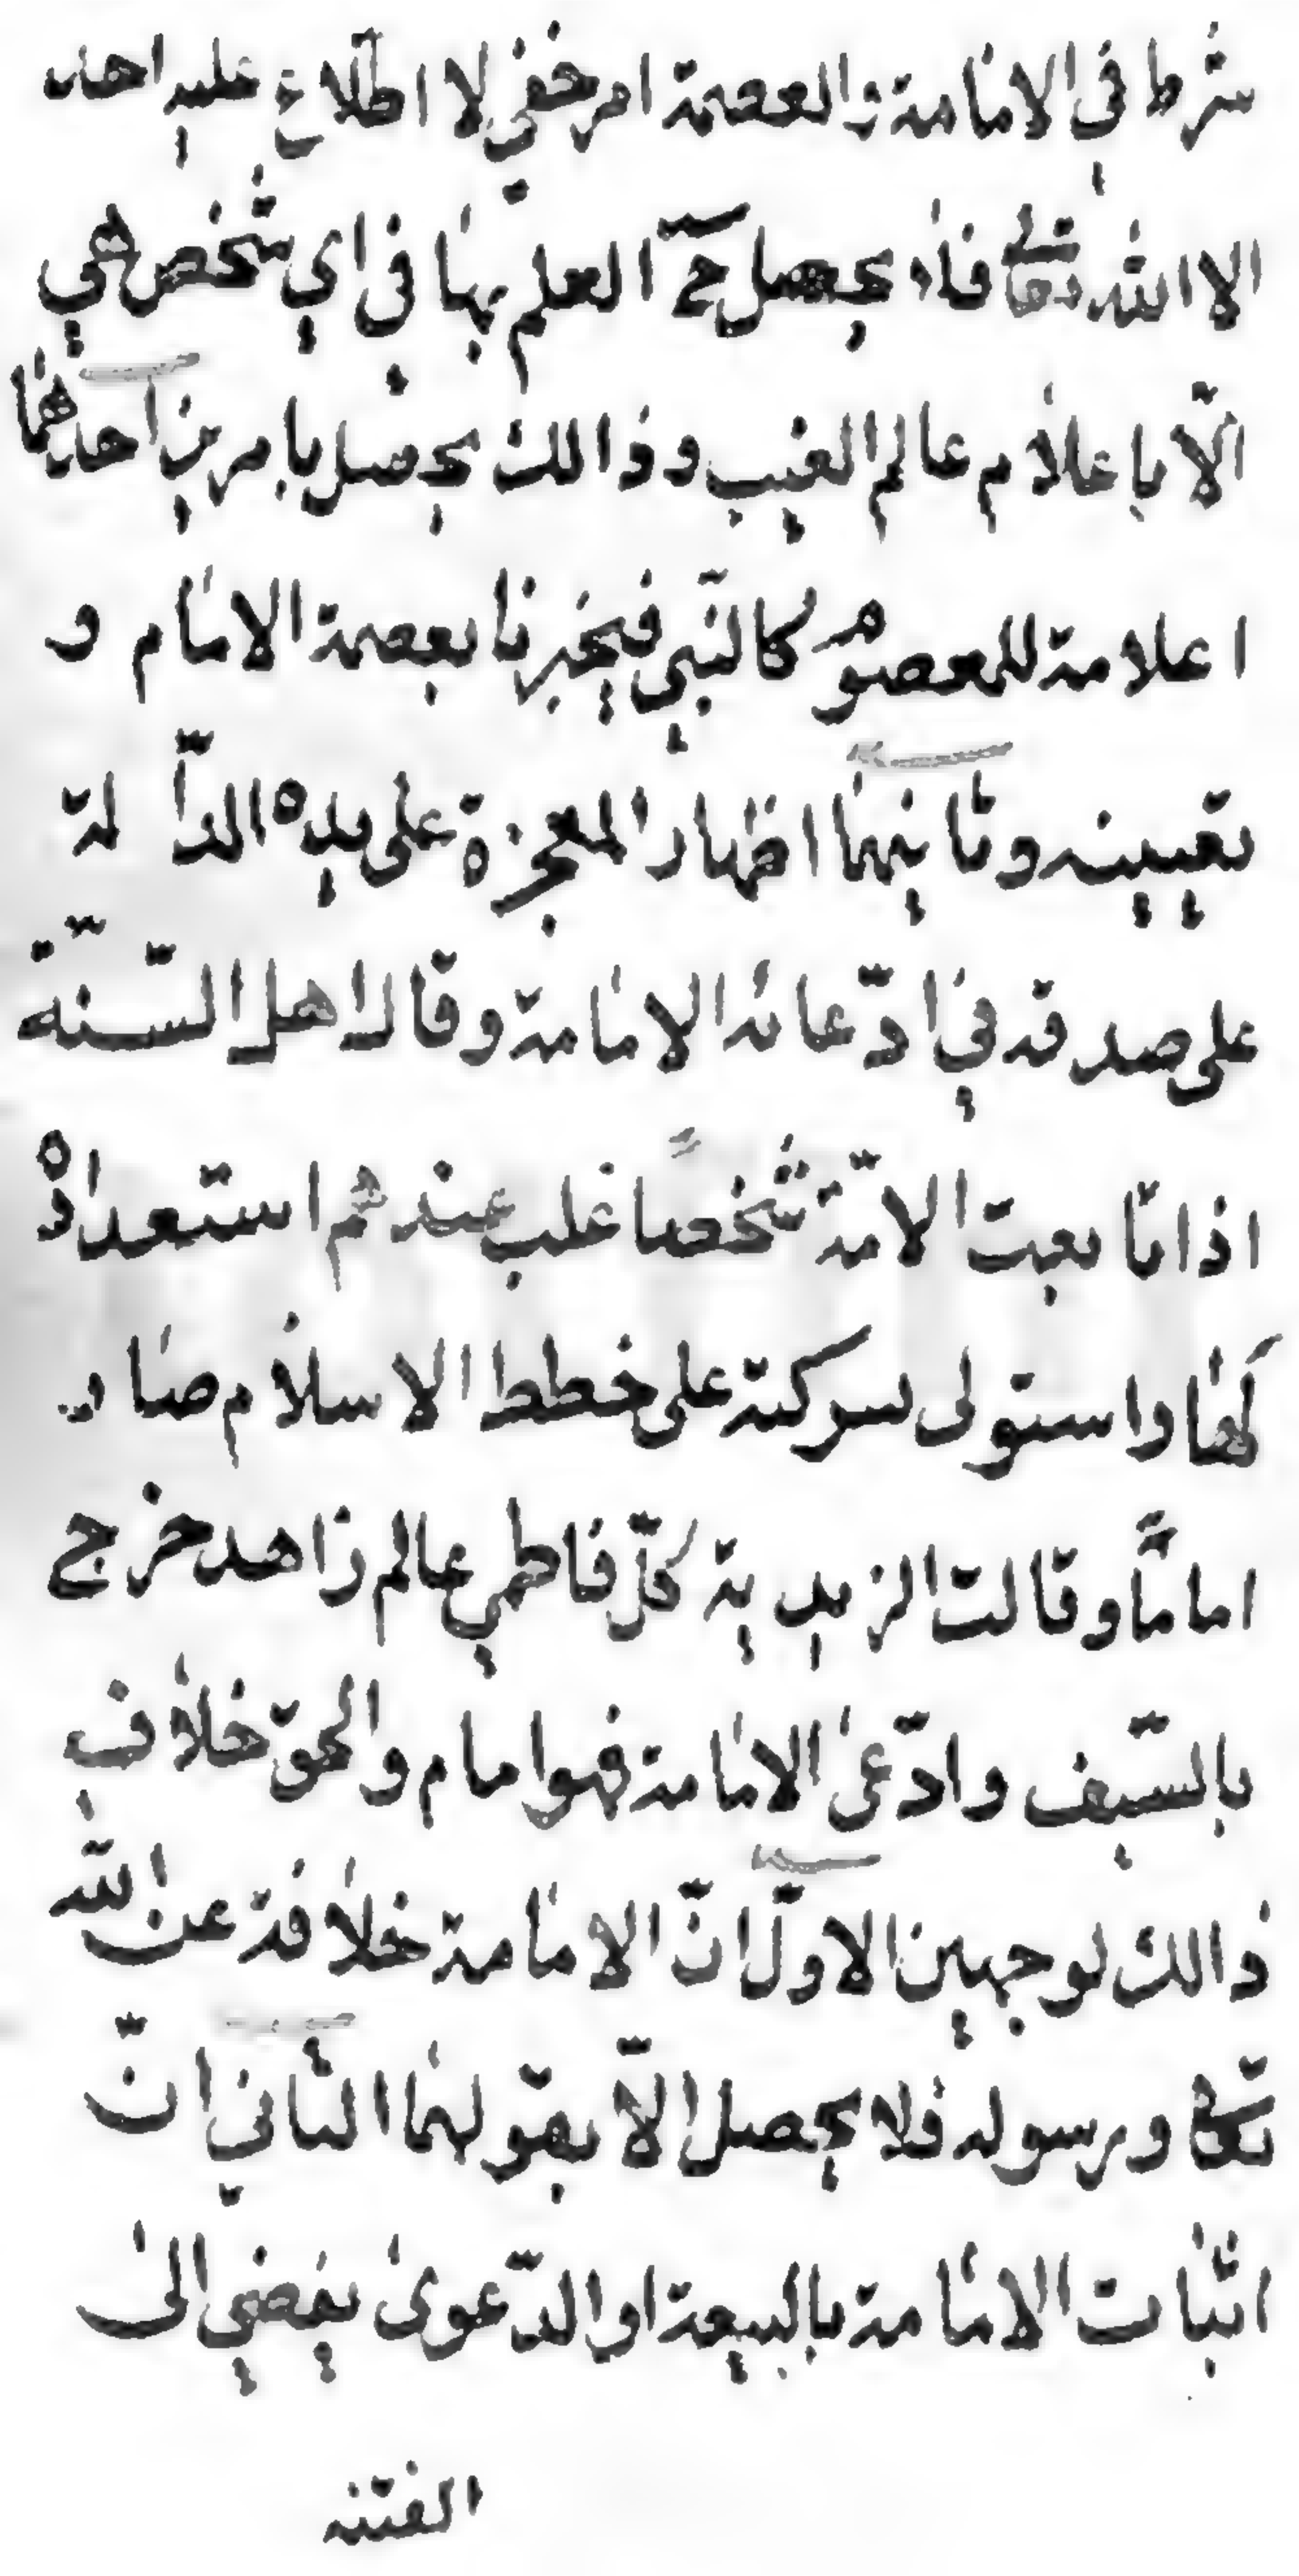 شرط في الامامة والعصمة امر خفي لا اطلاع عليه احد
الا الله تعالى فلا يحصل ح العلم بها في اي شخص هي
الّا باعلام عالم الغيب وذالك يحصل بامرين احدهما
اعلامة للمعصوم كالنبي فيخبرنا بعصمة الامام و
تعيينه وثانيهما اظهار المعجزة على يده الدّالة
على صدقه في ادّعائه الامامة وقال اهل السّنة
اذا بايعت الامّة شخصًا غلب عندهم استعداده
لها واستولى بسوكته على خطط الاسلام صار
امامًا وقالت الزيدية كلّ فاطمي عالم زاهد خرج
بالسّيف وادّعى الامامة فهو امام والحق خلاف
ذالك لوجهين الاوّل انّ الامامة خلافة عن الله
تعالى ورسوله فلا يحصل الّا بقولهما الثاني انّ
اثبات الامامة بالبيعة او الدّعوى يفضي الى
الفتنه